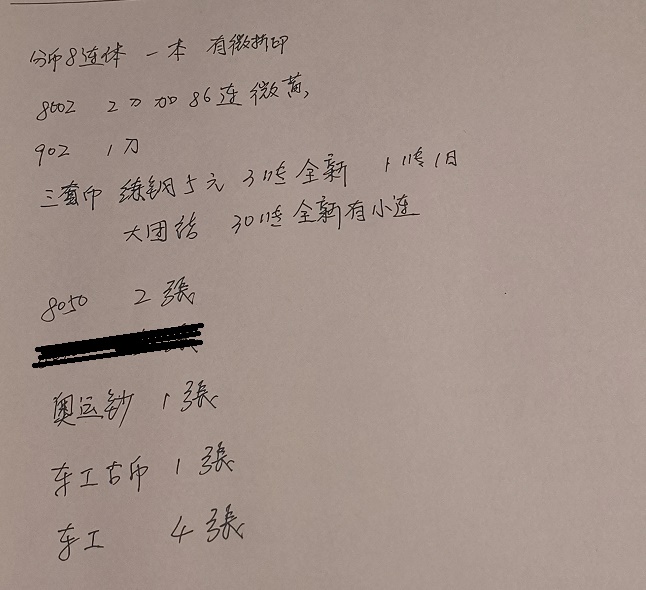 分币8连体 一本 有微折印
8002 2刀 加86连 微黄,
902 1刀
三套币 炼钢5元 3张 全新 1张 1日
大团结 30张 全新有小连
8050 2張
奥运钞 1張
车工古币 1張
车工 4張